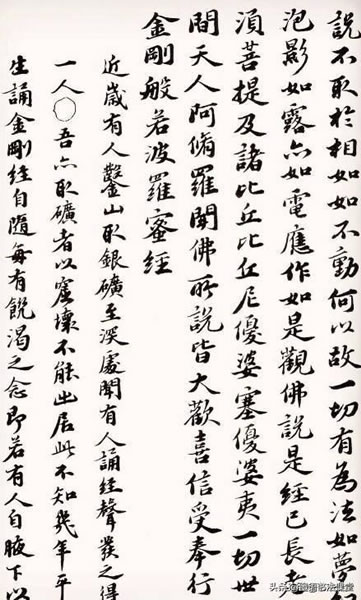 說不取於相如如不動何以故一切有為法如夢
泡影如露亦如電應作如是觀佛說是經已長老
須菩提及諸比丘比丘尼優婆塞優婆夷一切世
間天人阿脩羅聞佛所說皆大歡喜信受奉行
金剛般若波羅蜜經
近歲有人鑿山取銀礦至深處聞有人誦經聲發之得
一人○吾亦取礦者以窟壞不能出居此不知幾年平
生誦金剛經自隨每有飢渴之念即若有人自腋下以